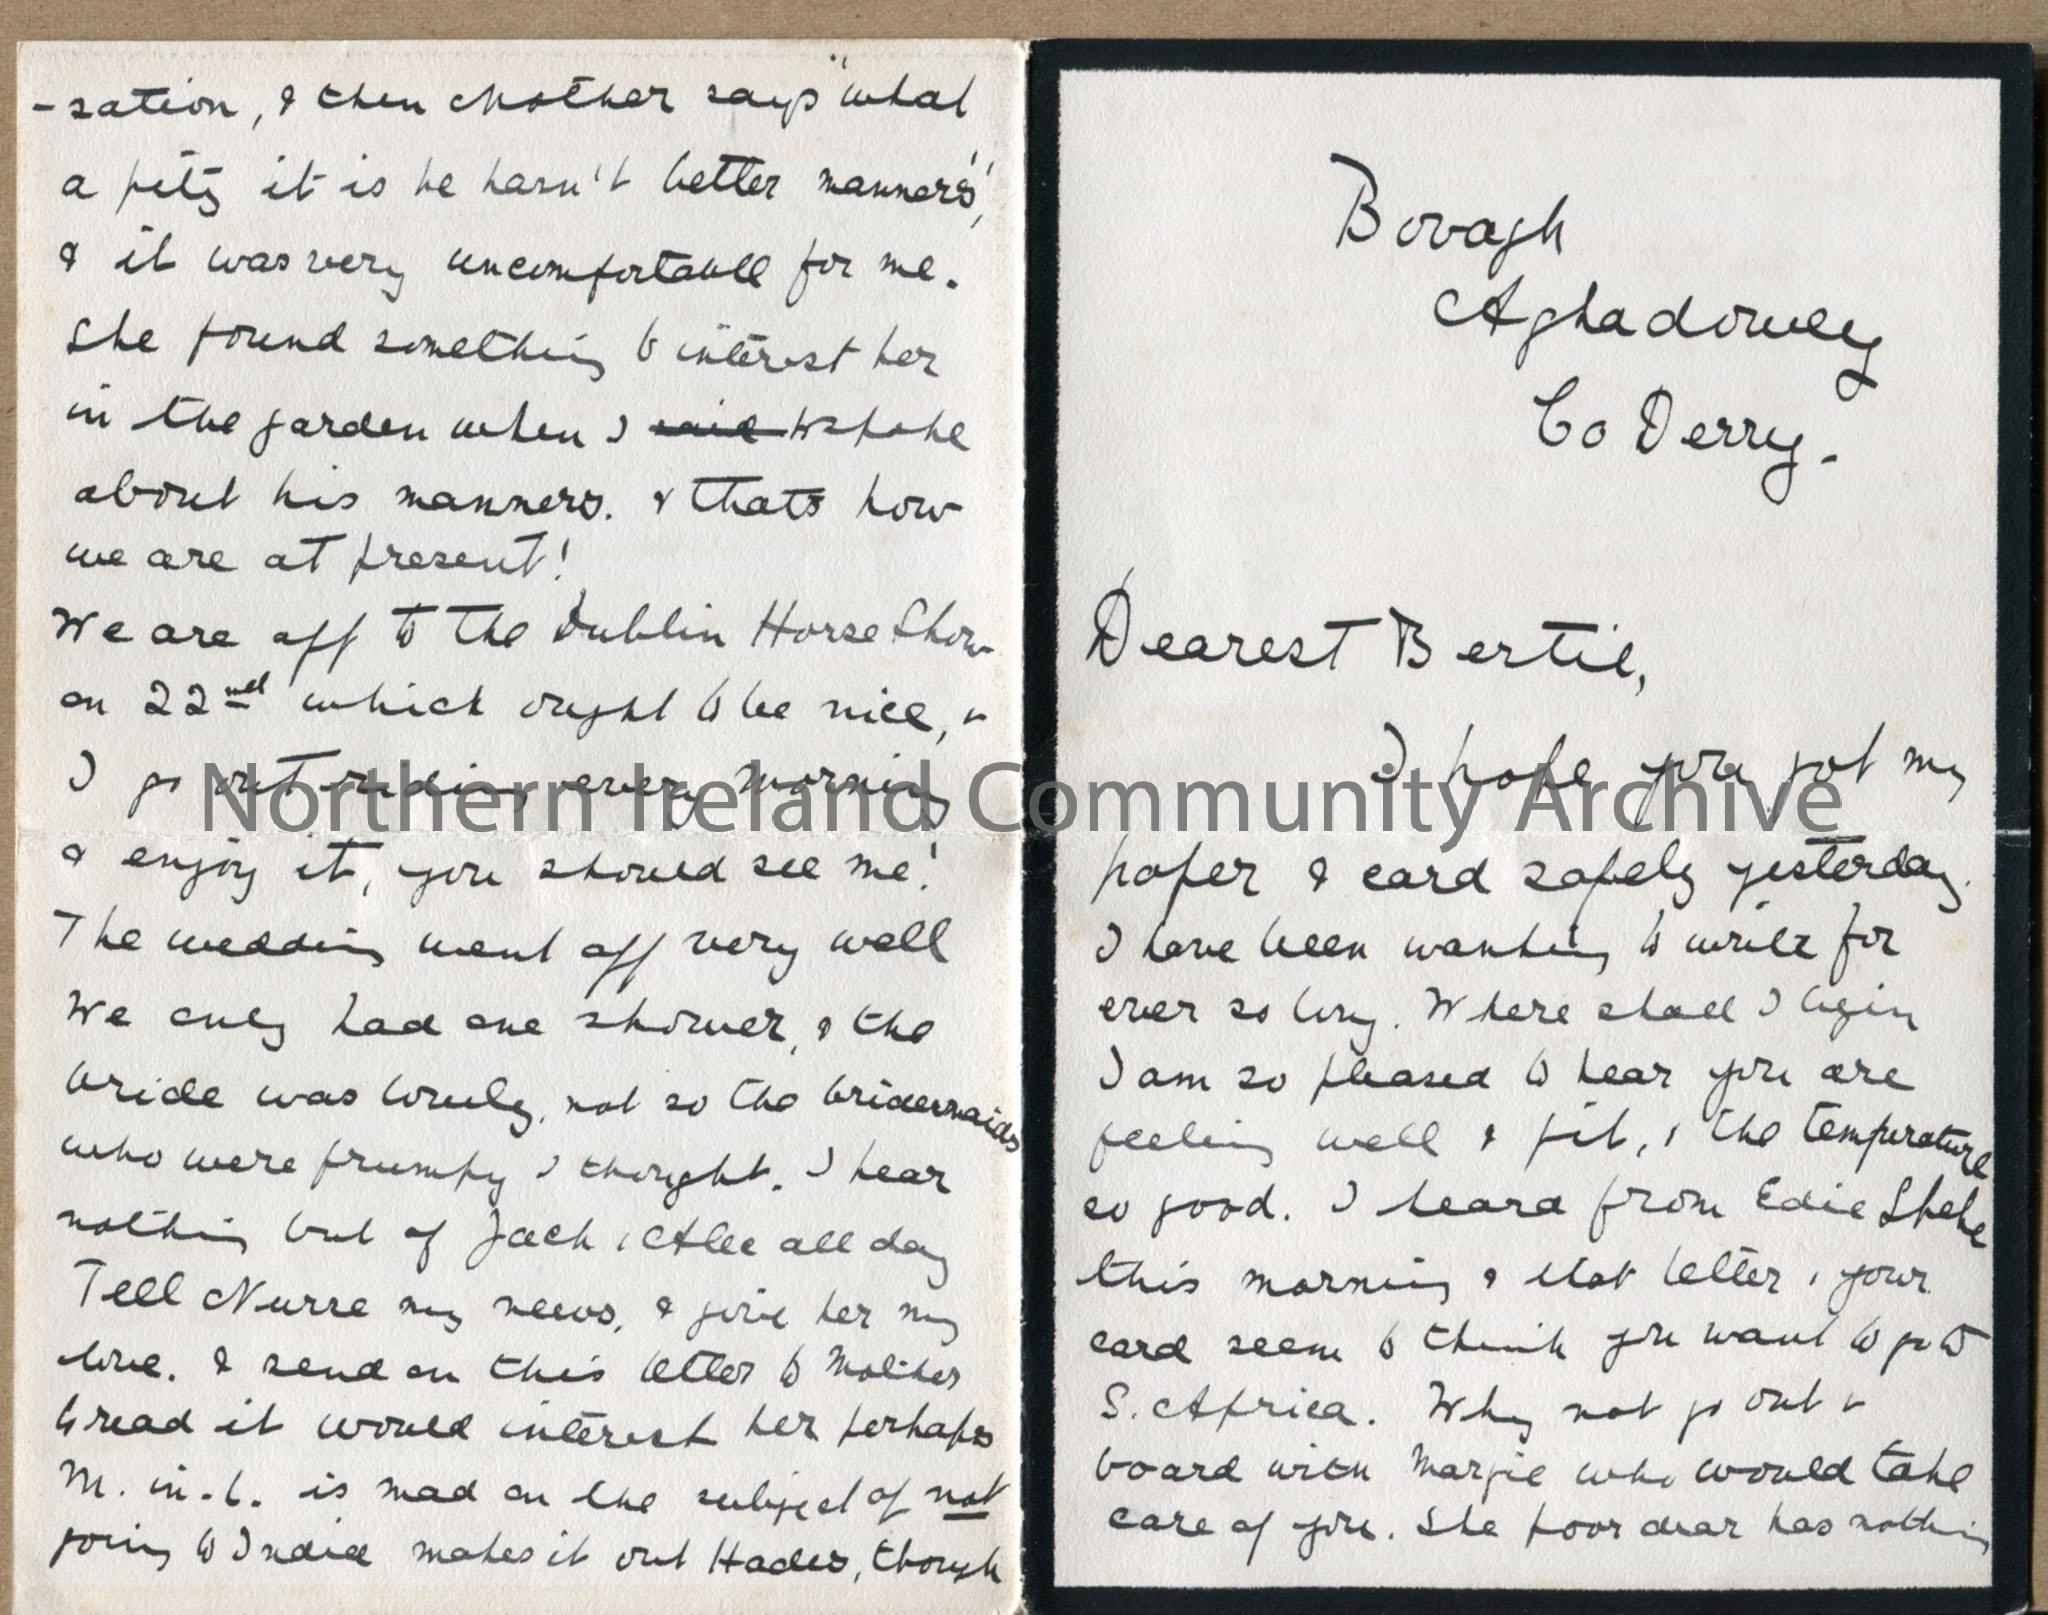 -sation, & then Mother says "what
a pity it is he hasn't better manners",
& it was very uncomfortable for me.
She found something to interest her
in the garden when I said to spoke
about his manners. & thats how
we are at present!
We are off to the Dublin Horse Show
on 22nd which ought to be nice, &
I go out riding every morning
& enjoy it, you should see me!
The wedding went off very well
We only had one shower, & the
bride was lovely, not so the bridesmaids
who were frumpy I thought. I hear
nothing but of Jack & Alec all day
Tell Nurse my news, & give her my
love. & send on this letter to Mother
to read it would interest her perhaps
M. in. L. is mad on the subject of not
going to India makes it out Hades, though
Bovagh
Aghadowey
Co Derry.
Dearest Bertie,
I hope you got my
paper & card safely yesterday.
I have been wanting to write for
ever so long. Where shall I begin
I am so pleased to hear you are
feeling well & fit, & the temperature
so good. I heard from Edie
this morning & that letter & your
card seem to think you want to go to
S. Africa. Why not go out &
board with Margie who would take
care of you. She poor dear has nothing
Northern Ireland Community Archive